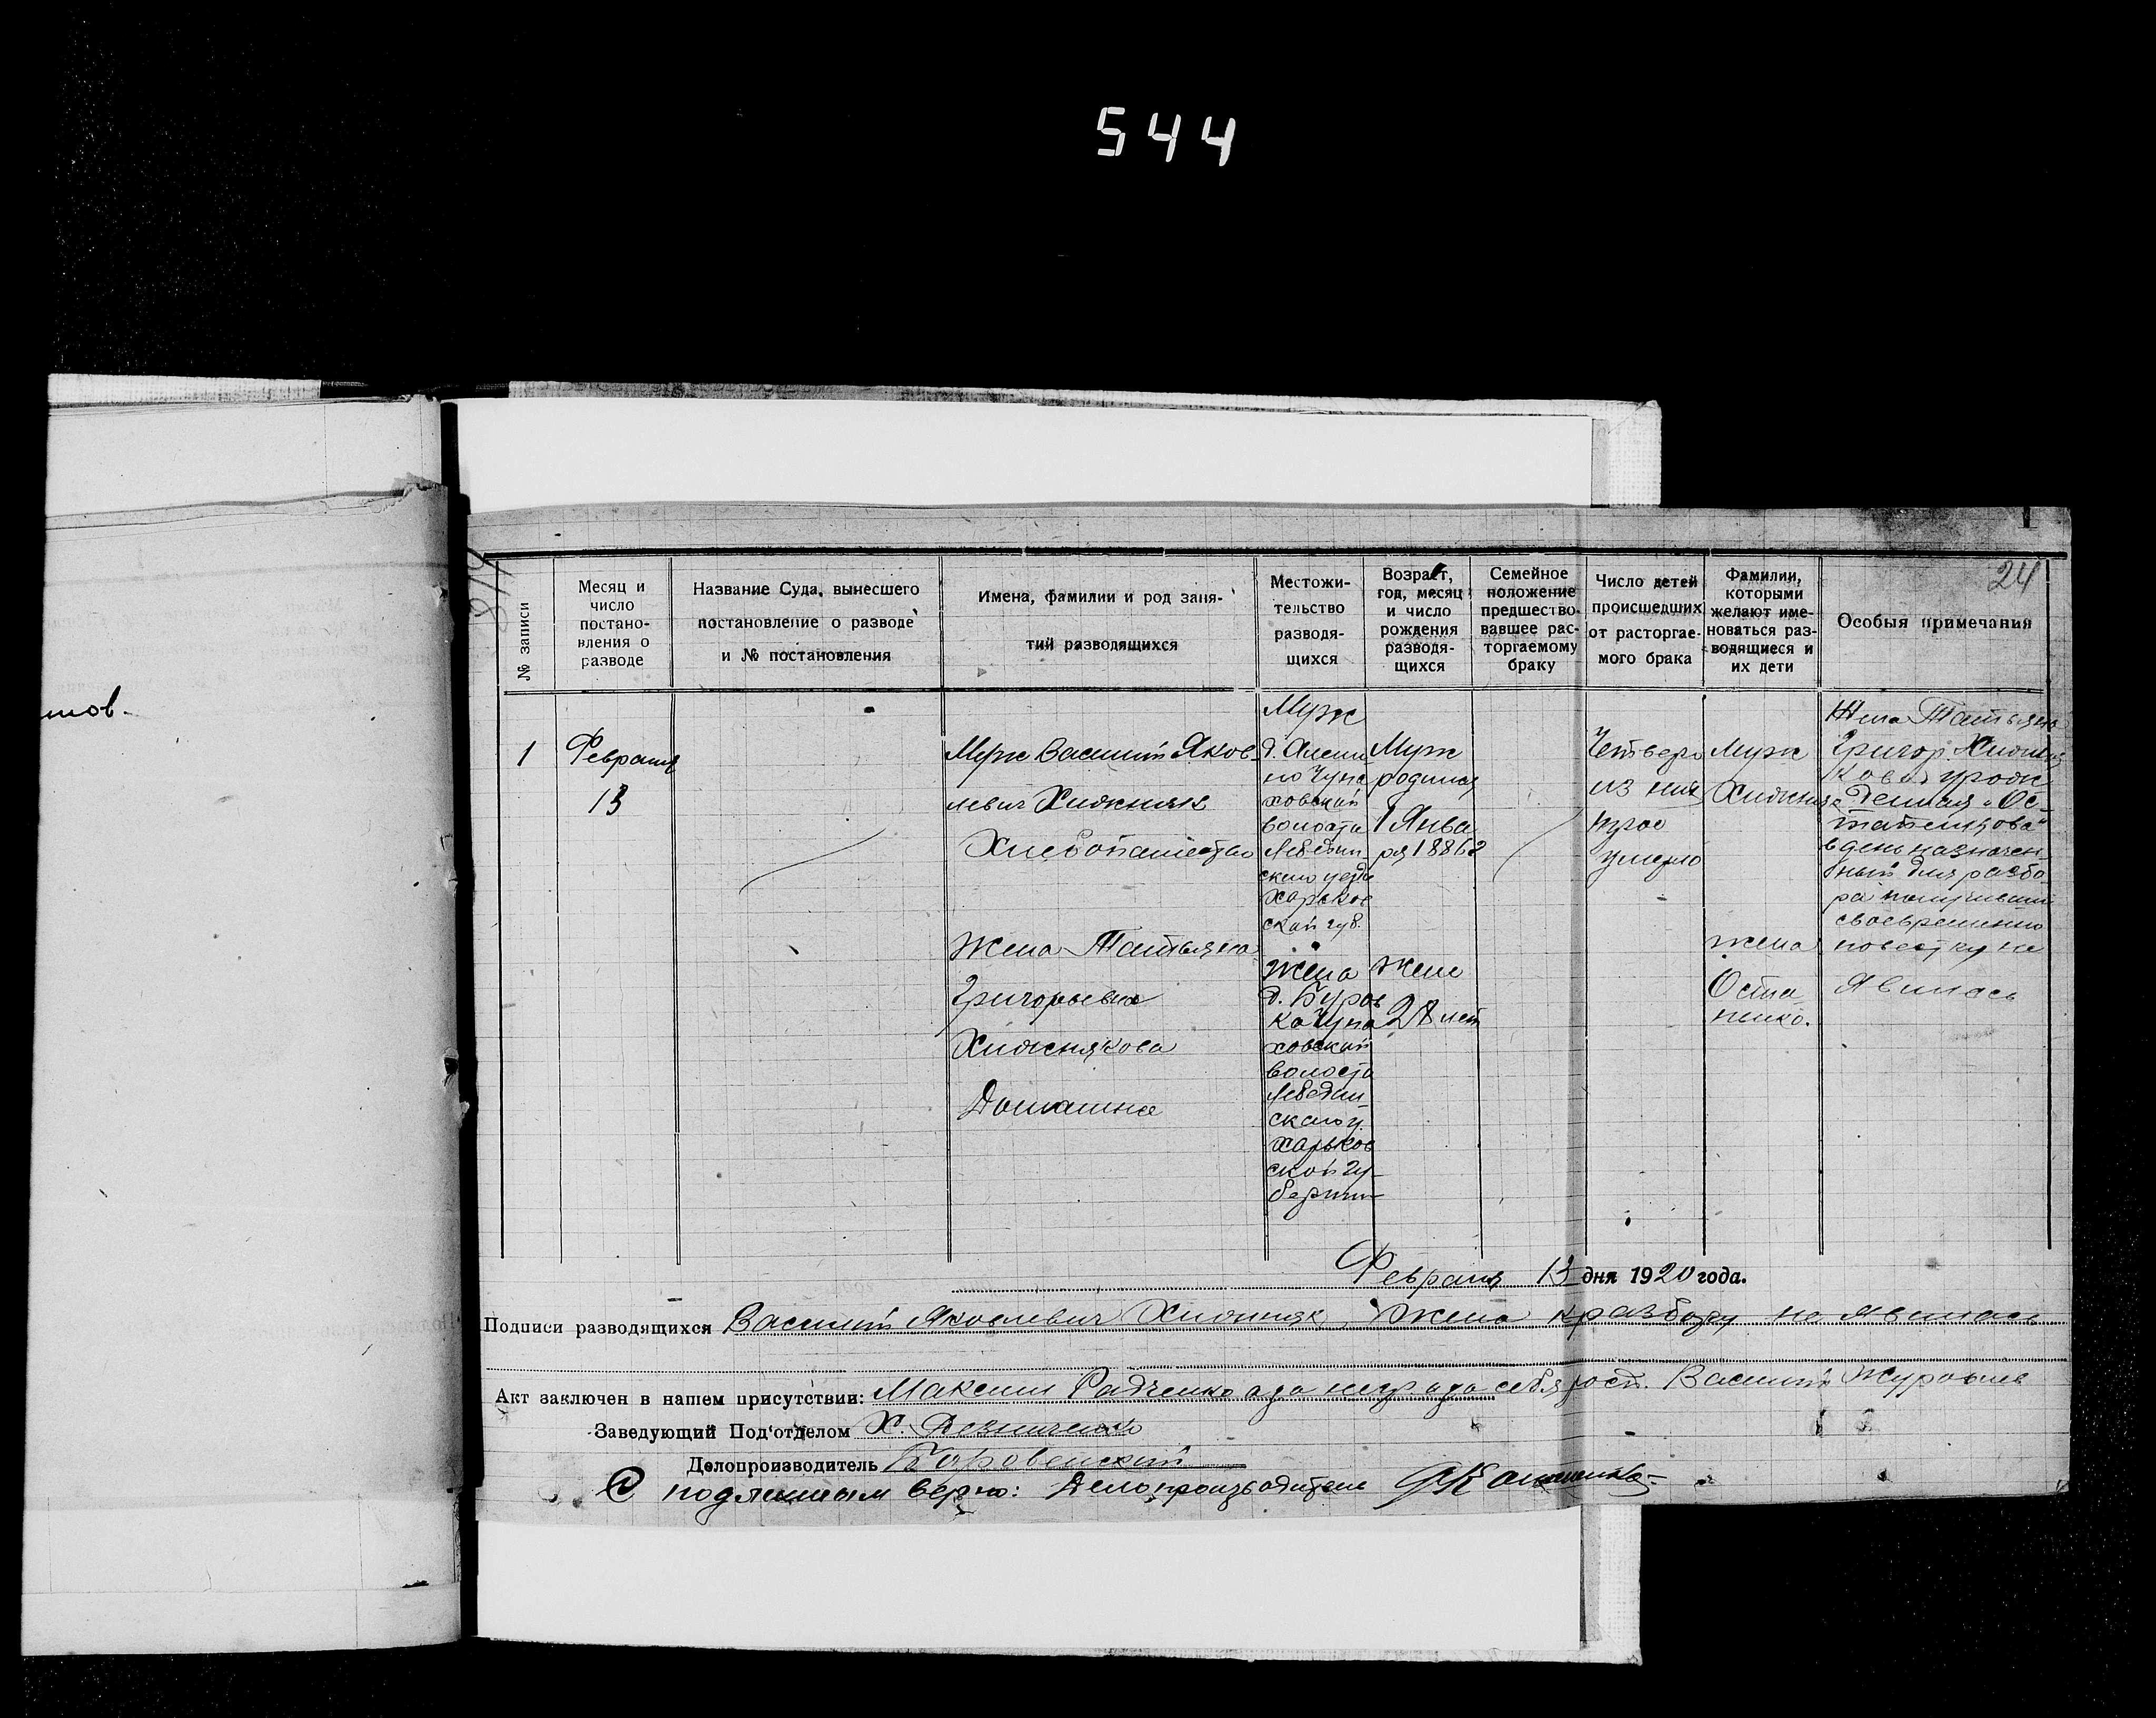 544
24
№ записи
Месяц и
число
постано-
вления о
разводе
Название Суда, вынесшего
постановление о разводе
и № постановления
Имена, фамилии и род заня-
тий разводящихся
Местожи-
тельство
разводя-
щихся
Возраст,
год, месяц
и число
рождения
разводя-
щихся
Семейное
положение
предшество-
вавшее рас-
торгаемому
браку
Число детей
происшедших
от расторгае-
мого брака
Фамилии,
которыми
желают име-
новаться раз-
водящиеся и
их дети
Особыя примечания
1
Февраля
13
Муж Василий Яков-
левич Хижняк
Хлебопашество
Жена Татьяна
Григорьевна
Хижнякова
Домашне
Муж
но Чупа
ховской
волости
Лебедин-
ского уезда
Харьков
ской губ.
Жена
д. Буров
ка Чупа
ховской
волости
Лебедин-
ского у.
Харьков
ской гу-
бернии
Муж
родился
1 Янва
ря 1886 г
Жене
28 лет
Четверо
из них
трое
умерло
Муж
Хижняк
Жена
Оста-
пенко.
Жена Татьяна
Григор. Хижня
кова урож
денная
в день назначен-
ный для разбо-
ра получивши
своевременно
повестку не
явилась
Февраля 13 дня 1920 года.
Подписи разводящихся Василий Яковлевич Хижняк, Жена к разводу не явилась
Акт заключен в нашем присутствии: Максим Радченко а за негр. и за себя рост. Василий Журавлев
Заведующий Под'отделом Х.
Делопроизводитель
С подлинным верно: Делопроизводитель